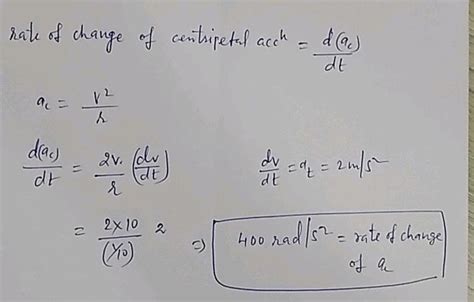 rate of change of centripetal accⁿ = d(a꜀)/dt
a꜀ = v²/r
d(a꜀)/dt = 2v./r (dv/dt)    dv/dt = aₜ = 2m/s²
= 2×10/(1/10) 2 ⇒ 400 rad/s² = rate of change
of a꜀